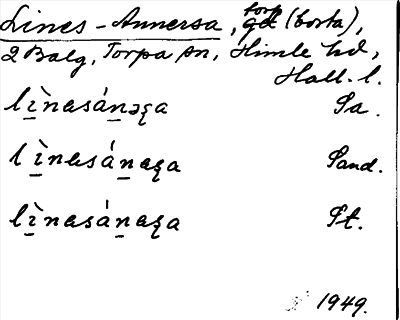 Lines-Annersa, torp gd (borta),
2 Balg, Torpa sn, Himle hd,
Hall. l.
lì̱nɐsáṉɘʂa Sa.
lì̱nɐsáṉɐʂa Sand.
lì̱nɐsáṉɐʂa St.
1949.